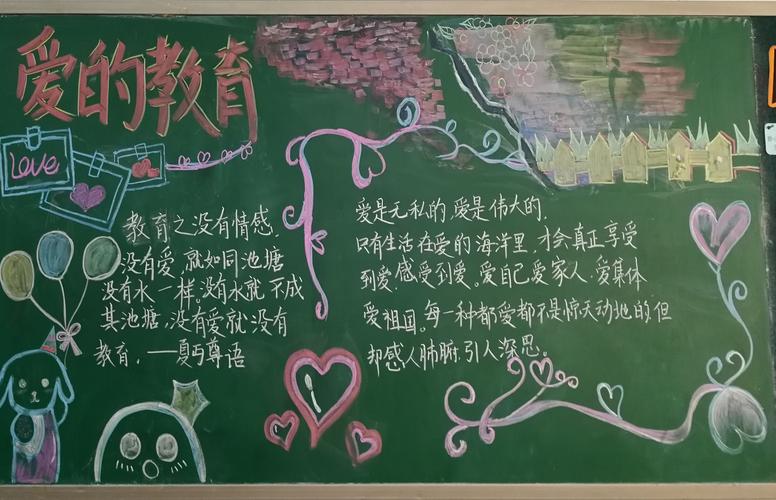 爱的教育
Love
教育之没有情感,
没有爱,就如同池塘
没有水一样。没有水就不成
其池塘,没有爱就没有
教育。——夏丏尊语
爱是无私的,爱是伟大的.
只有生活在爱的海洋里,才会真正享受
到爱,感受到爱。爱自己,爱家人,爱集体
爱祖国。每一种都爱都不是惊天动地的,但
却感人肺腑,引人深思。